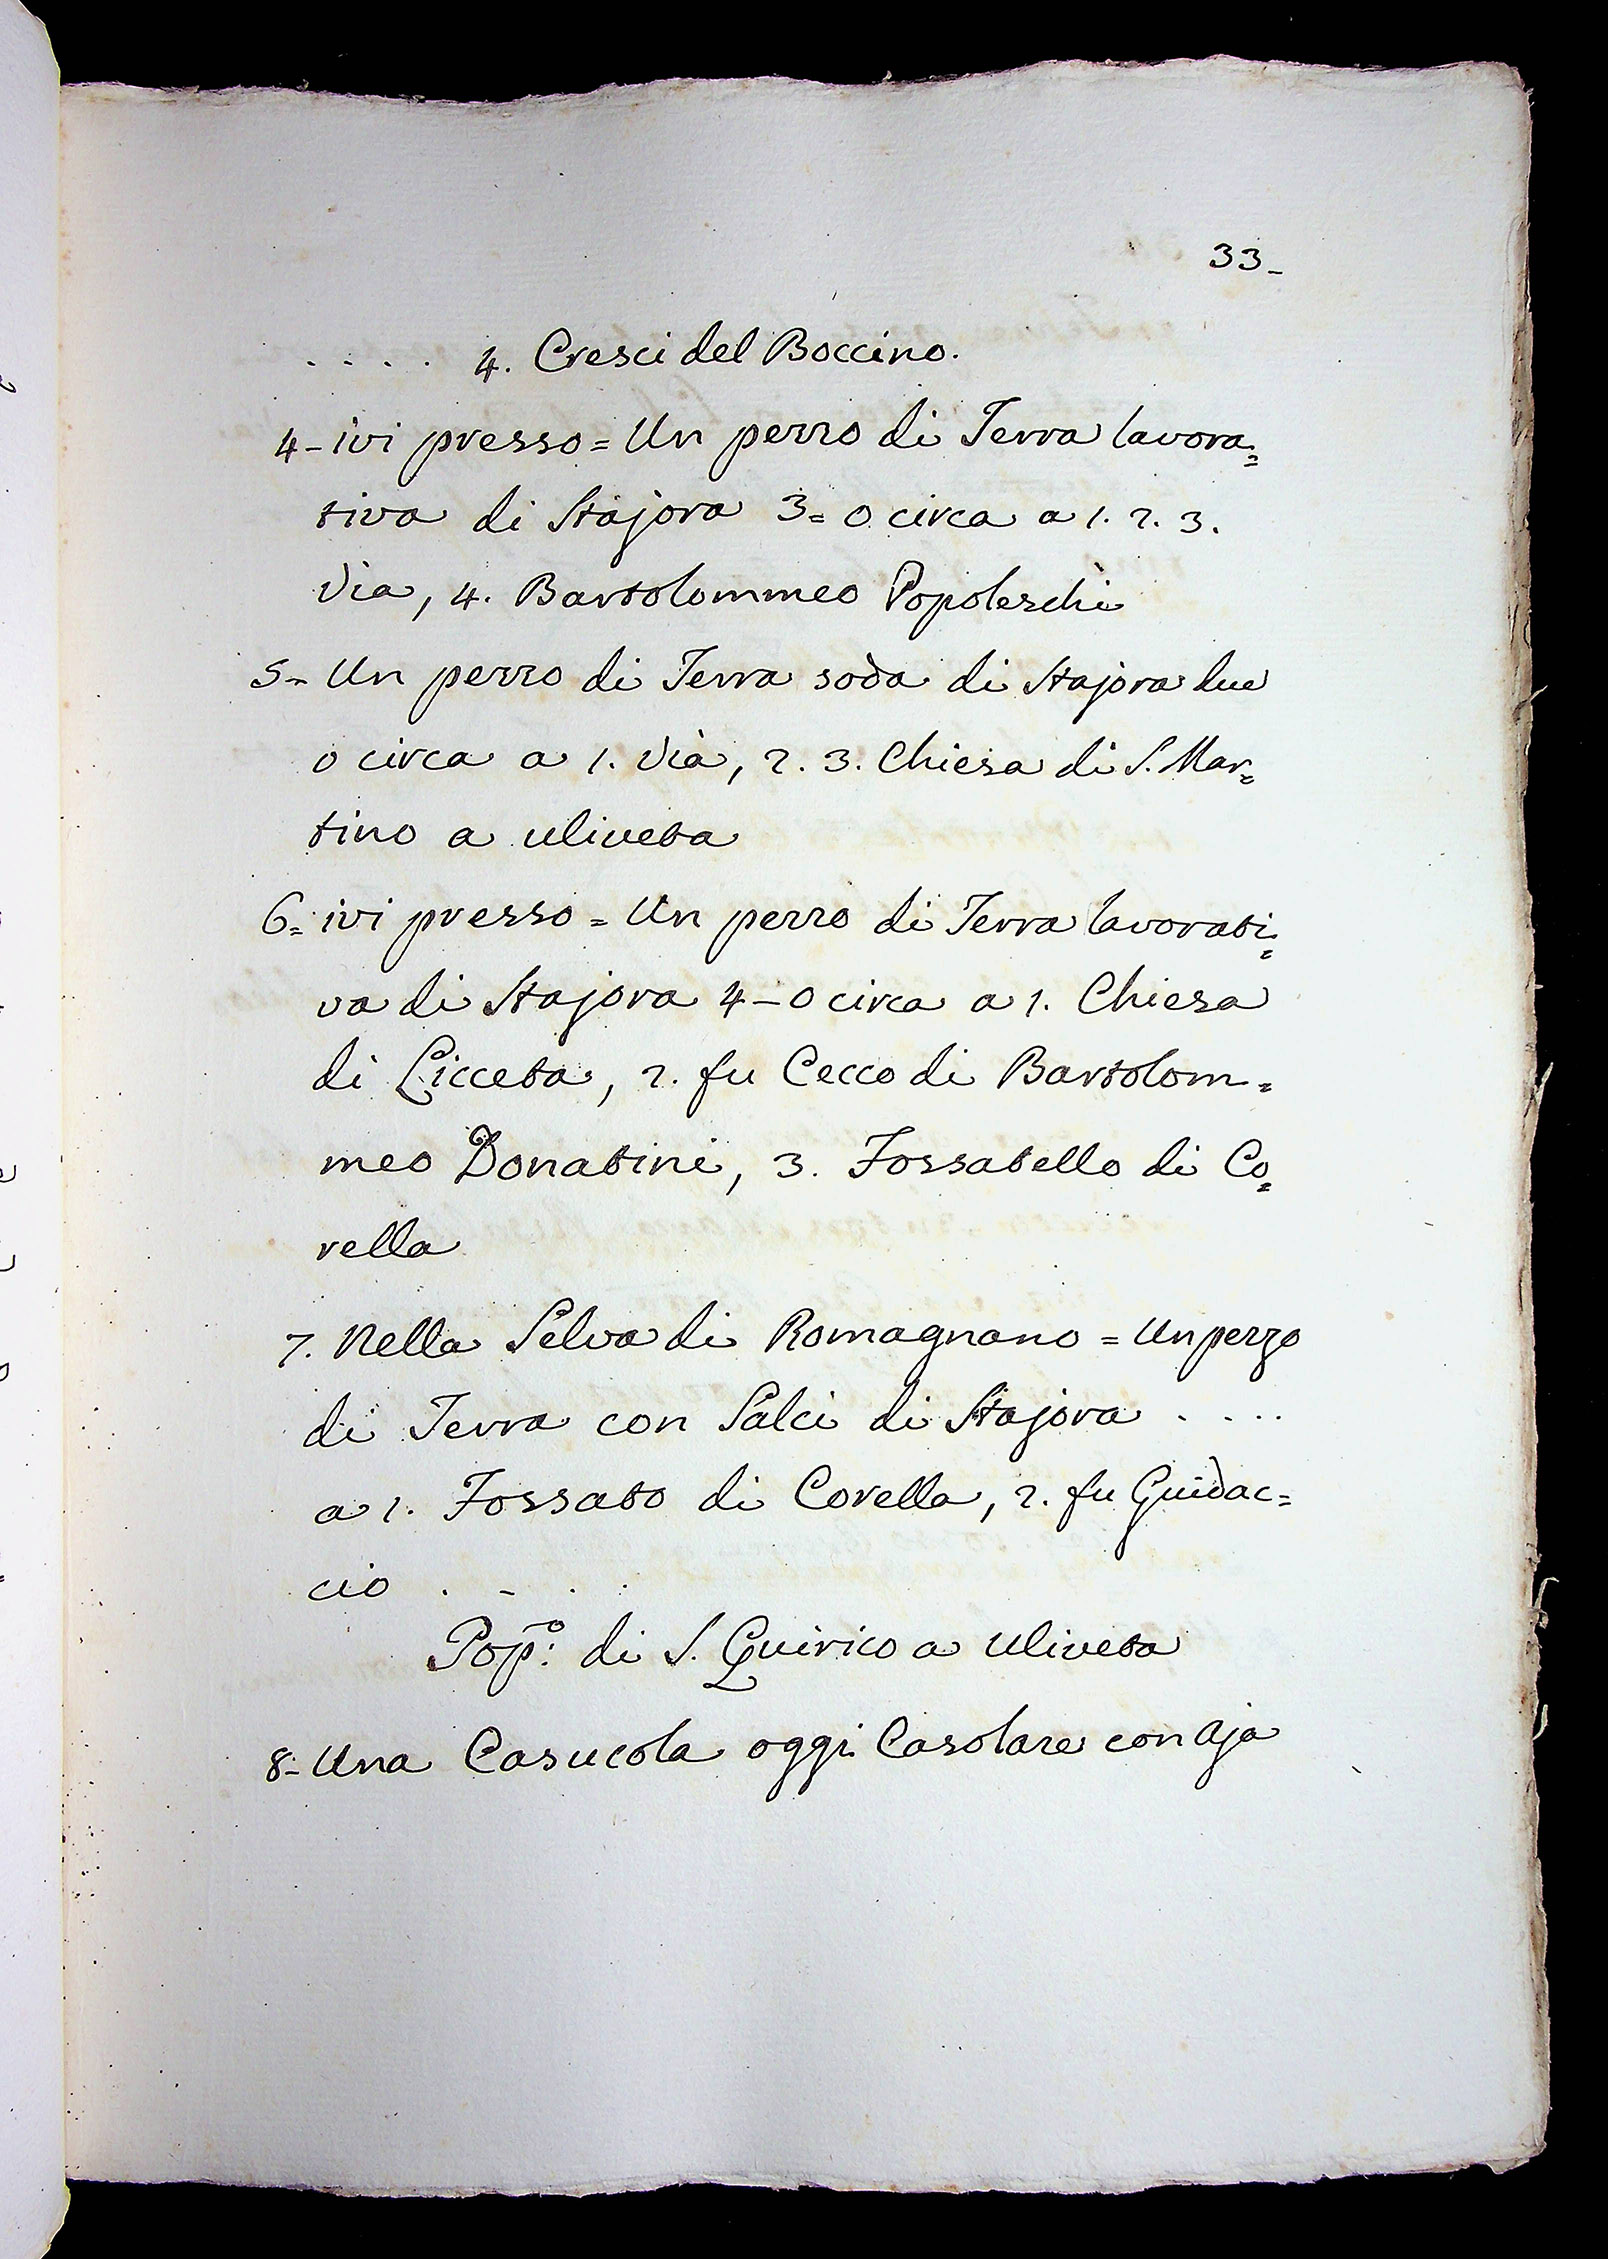 33-
. . . . . 4. Cresci del Boccino.
4- ivi presso = Un pezzo di Terra lavora=
tiva di Stajora 3= o circa a 1. 2. 3.
Via, 4. Bartolommeo Popoleschi
5= Un pezzo di Terra soda di Stajora due
o circa a 1. Via, 2. 3. Chiesa di S. Mar=
tino a uliveta
6= ivi presso = Un pezzo di Terra lavorati=
va di Stajora 4- o circa a 1. Chiesa
di Licceta, 2. fu Cecco di Bartolom=
meo Donatini, 3. Fossatello di Co=
rella
7. Nella Selva di Romagnano = Un pezzo
di Terra con Salci di Stajora . . . .
a 1. Fossato di Corella, 2. fu Guidac=
cio . - . .
Pop:º di S. Quirico a Uliveta
8- Una Casucola oggi Casolare con Aja